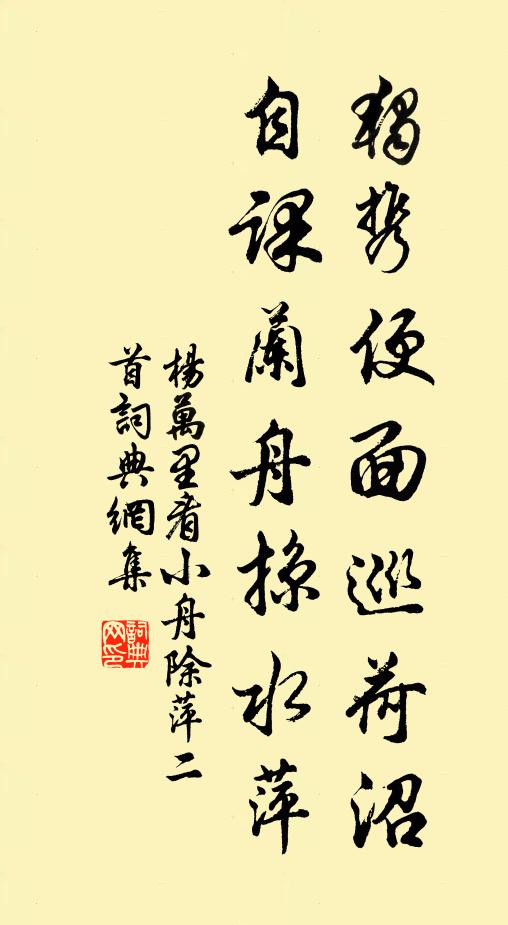 獨携便面巡荷沼
自課蘭舟掠水萍
楊萬里看小舟除萍二
首詞典網集
詞典
网印